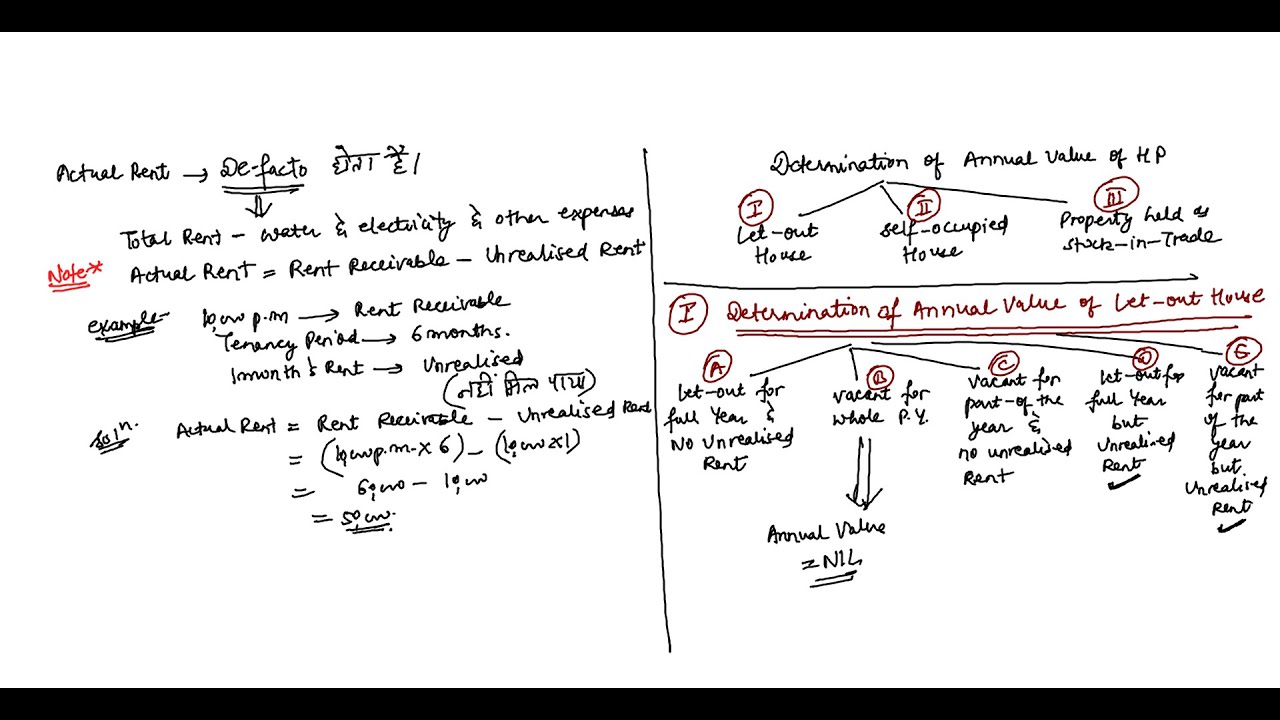 Actual Rent → De-facto होता है।
Total Rent - water & electricity & other expenses
Note* Actual Rent = Rent Receivable - Unrealised Rent
example- 10,000 p.m → Rent Receivable
Tenancy Period → 6 months.
1 month's Rent → Unrealised
(नहीं मिल पाया)
Soln. Actual Rent = Rent Receivable - Unrealised Rent
= (10,000 p.m. x 6) - (10,000 x 1)
= 60,000 - 10,000
= 50,000.
Determination of Annual Value of HP
I
Let-out
House
II
self-occupied
House
III
Property held as
stock-in-Trade
I Determination of Annual Value of Let-out House
A
Let-out for
full Year &
No Unrealised
Rent
B
vacant for
whole P.Y.
Annual Value
= NIL
C
vacant for
part-of the
year &
no unrealised
Rent
D
Let-out for
full Year
but
Unrealised
Rent
E
vacant
for part
of the
year
but
Unrealised
Rent